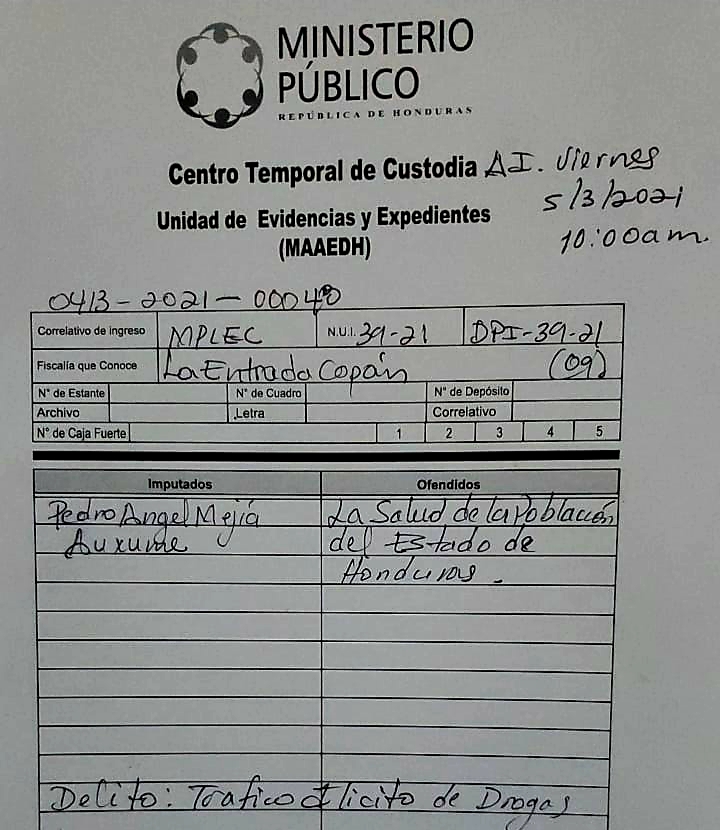 MINISTERIO
PÚBLICO
REPÚBLICA DE HONDURAS
Centro Temporal de Custodia AI. Viernes
Unidad de Evidencias y Expedientes 5/3/2021
(MAAEDH) 10:00am.
0413-2021-00040
Correlativo de ingreso MPLEC N.U.I. 39-21 DPI-39-21
Fiscalía que Conoce La Entrada Copán (09)
N° de Estante N° de Cuadro N° de Depósito
Archivo Letra Correlativo
N° de Caja Fuerte 1 2 3 4 5
Imputados Ofendidos
Pedro Angel Mejía La Salud de la Población
Auxume del Estado de
Honduras.
Delito: Trafico Ilicito de Drogas